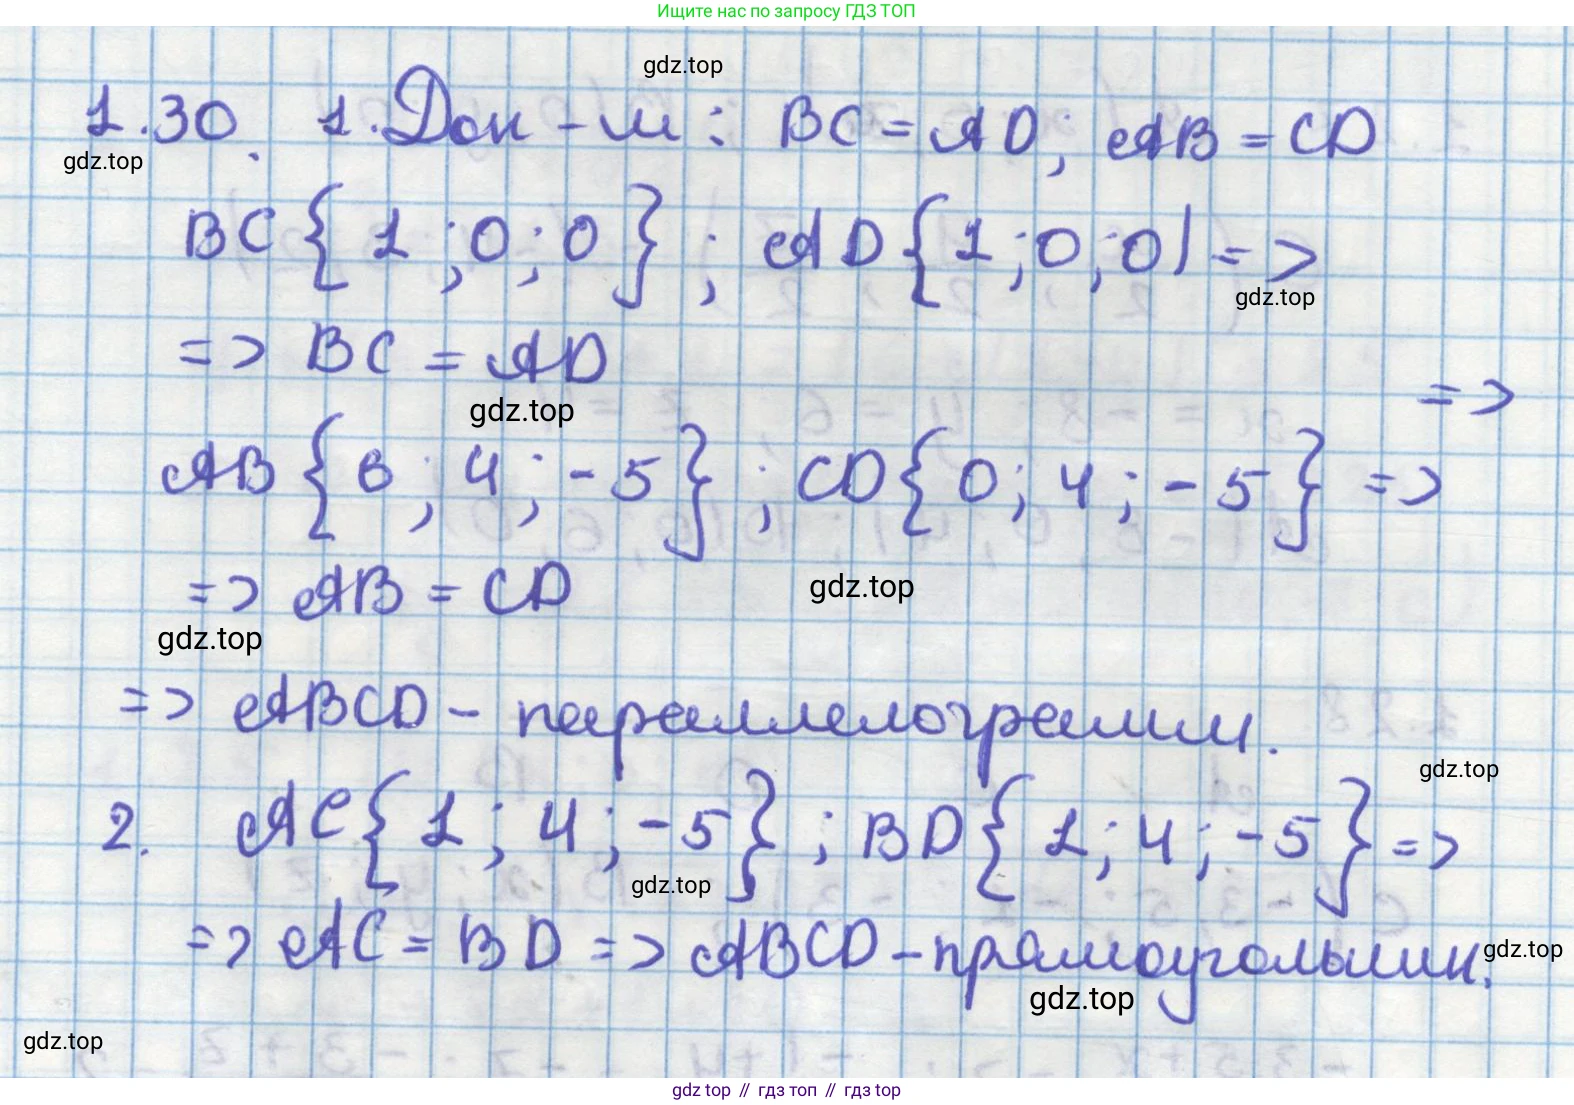 Ищите нас по запросу ГДЗ ТОП
gdz.top
1.30. 1. Док-м: BC = AD; AB = CD
gdz.top
BC { 1 ; 0 ; 0 } ; AD { 1 ; 0 ; 0 } =>
gdz.top
=> BC = AD
gdz.top
=>
AB { 0 ; 4 ; -5 } ; CD { 0 ; 4 ; -5 } =>
=> AB = CD
gdz.top
gdz.top
=> ABCD - параллелограмм.
gdz.top
2. AC { 1 ; 4 ; -5 } ; BD { 1 ; 4 ; -5 } =>
gdz.top
=> AC = BD => ABCD - прямоугольник.
gdz.top
gdz.top
gdz.top
gdz top // гдз топ // gdz top